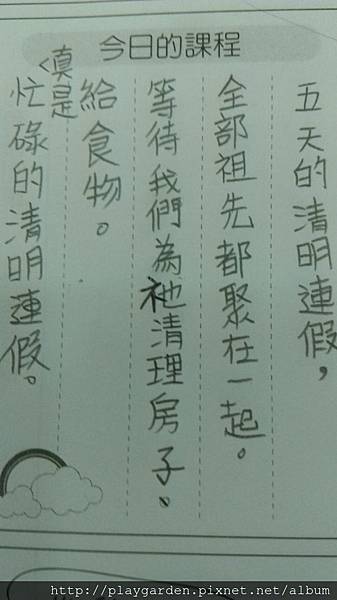 今日的課程
五天的清明連假，
全部祖先都聚在一起。
等待我們為祂清理房子、
給食物。
真是
忙碌的清明連假。
http://playgarden.pixnet.net/album